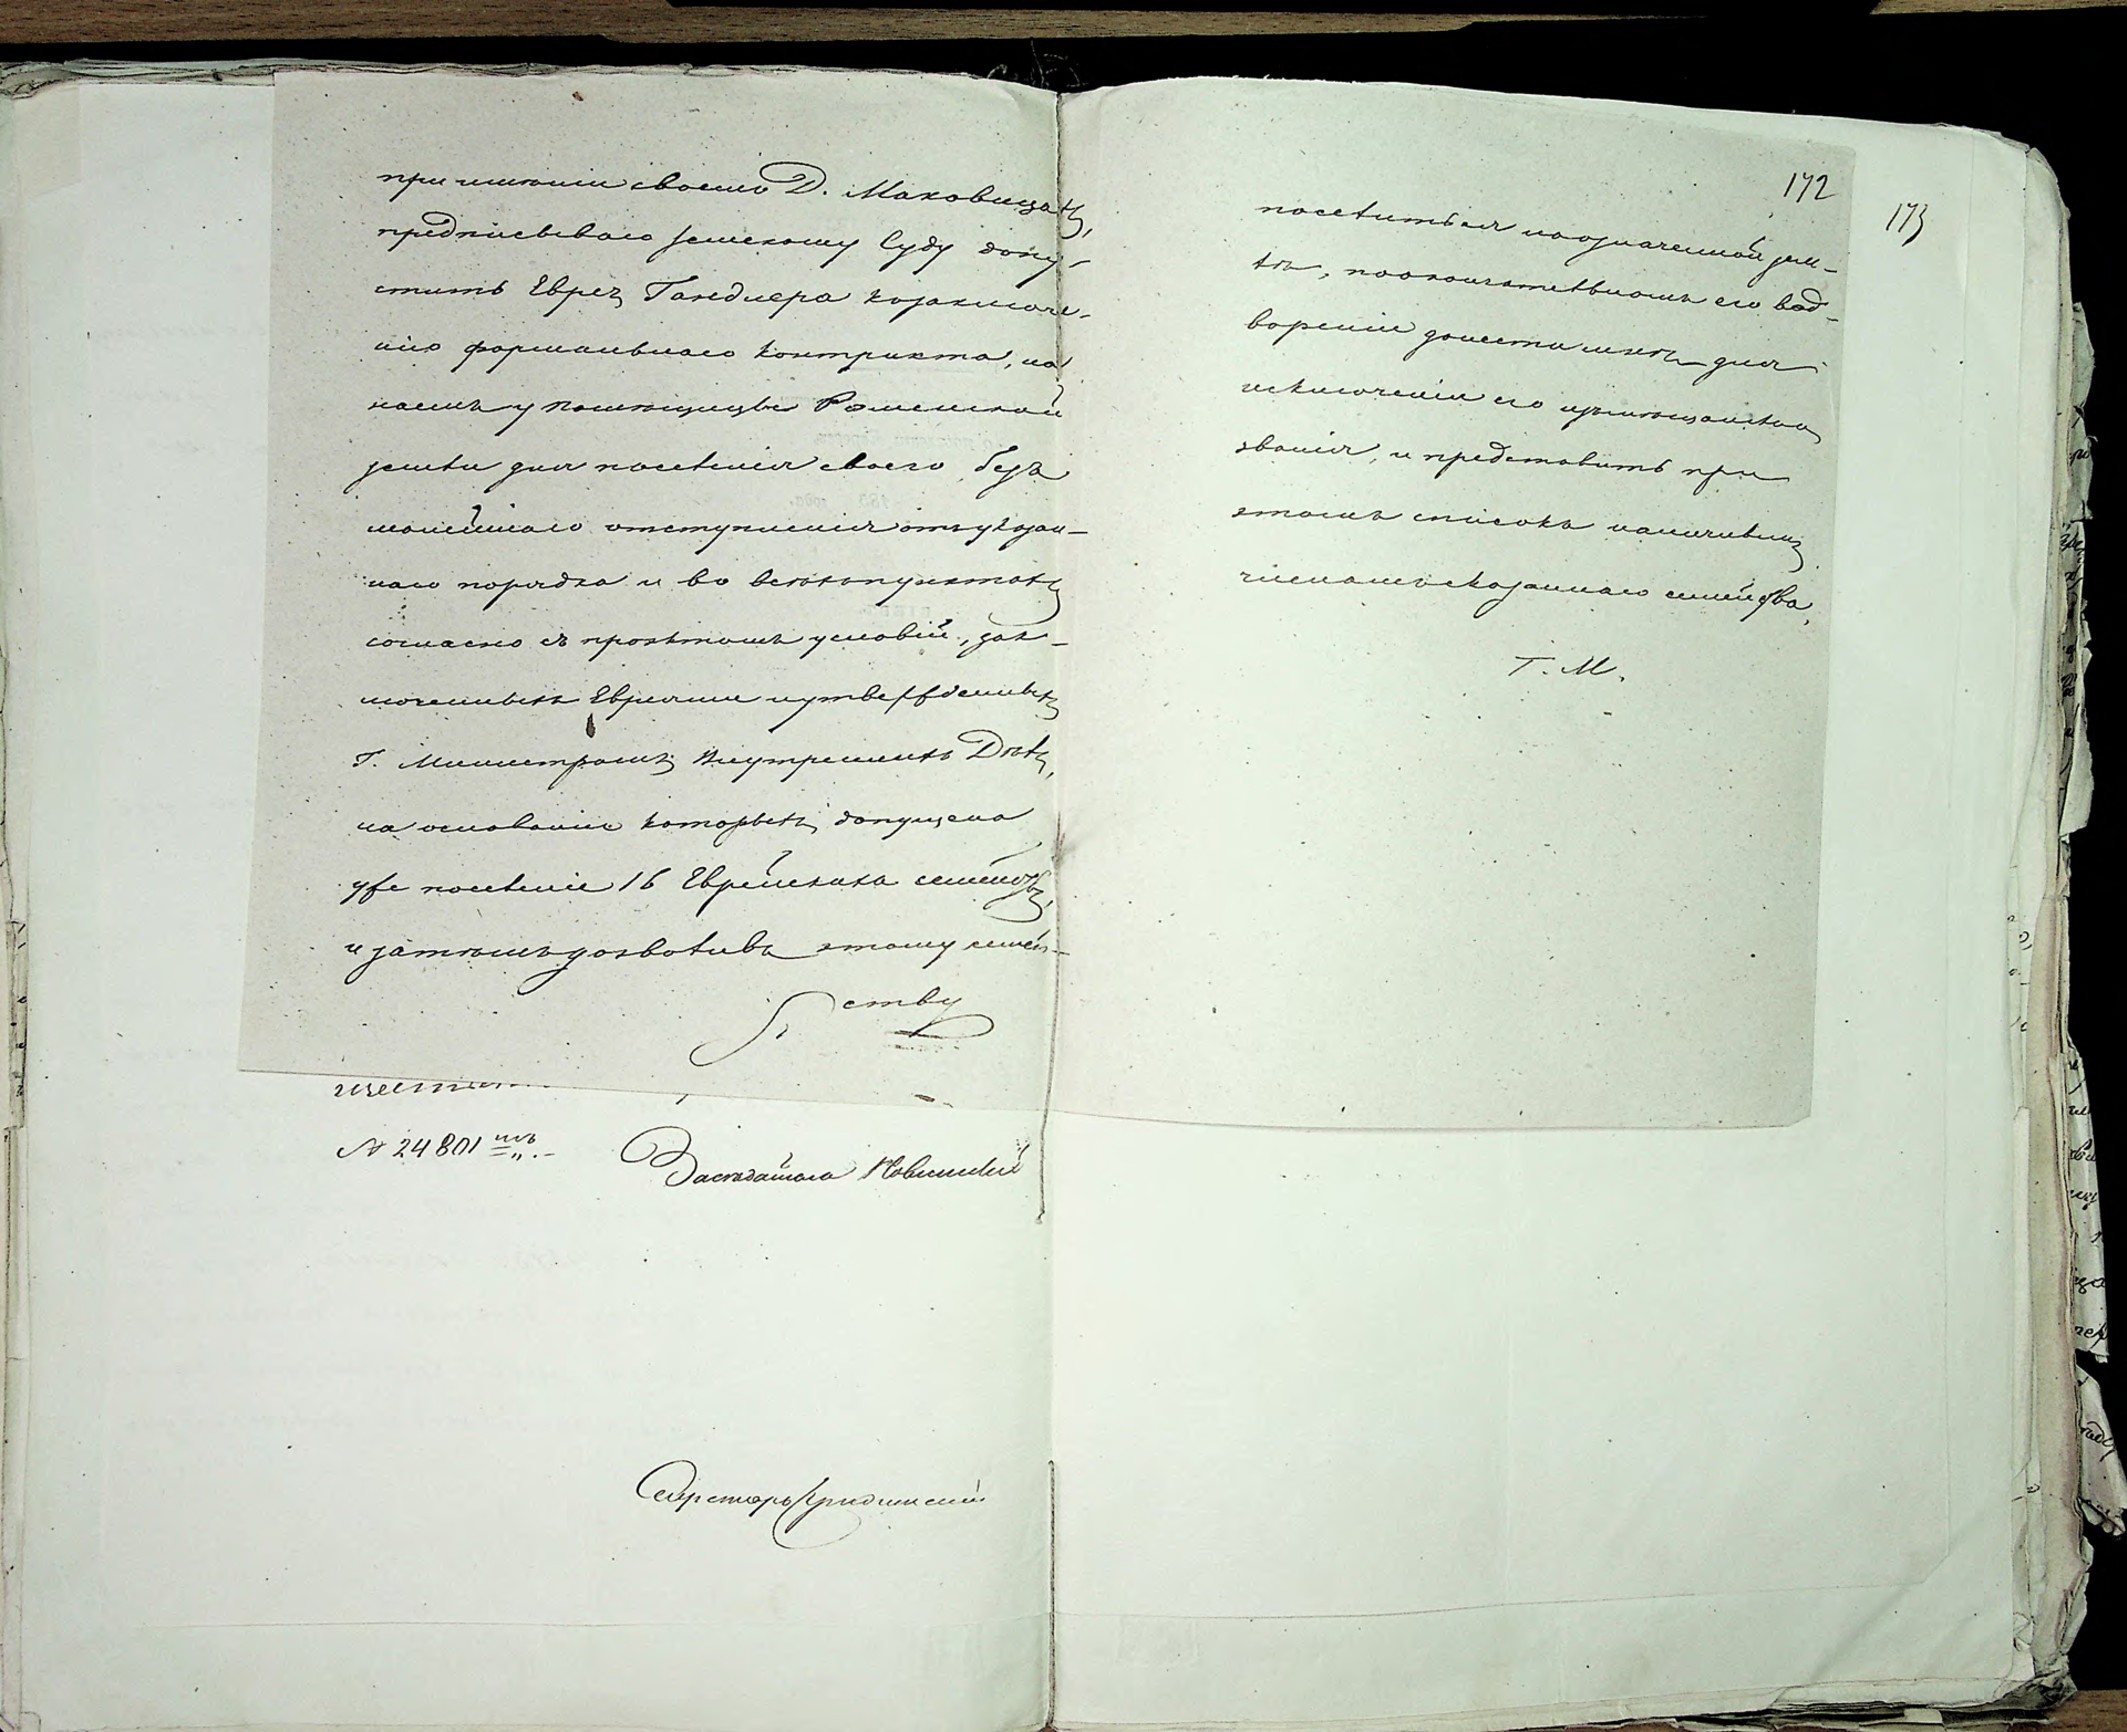 при имѣніи своемъ Д. Маковищахъ,
предписываю Земскому Суду допу-
стить Еврея Гандлера къ заключе-
нію формальнаго контракта, на
наемъ у помѣщицы Раменской
земли для поселенія своего безъ
малѣйшаго отступленія отъ указан-
наго порядка и во всѣхъ пунктахъ
согласно съ проэктомъ условій, зак-
люченныхъ Евреями и утвержденныхъ
Г. Министромъ Внутреннихъ Дѣлъ,
на основаніи которыхъ допущено
уже поселеніе 16 Еврейскихъ семействъ,
и затѣмъ дозволивъ этому семей-
ству
№ 24801
Засѣдатель
Секретарь
172
173
поселиться на означенной зем-
лѣ, по окончательномъ его вод-
вореніи донести мнѣ для
исключенія его изъ мѣщанскаго
званія, и представить при
этомъ списокъ наличнымъ
членамъ сказаннаго семейства.
Т. М.